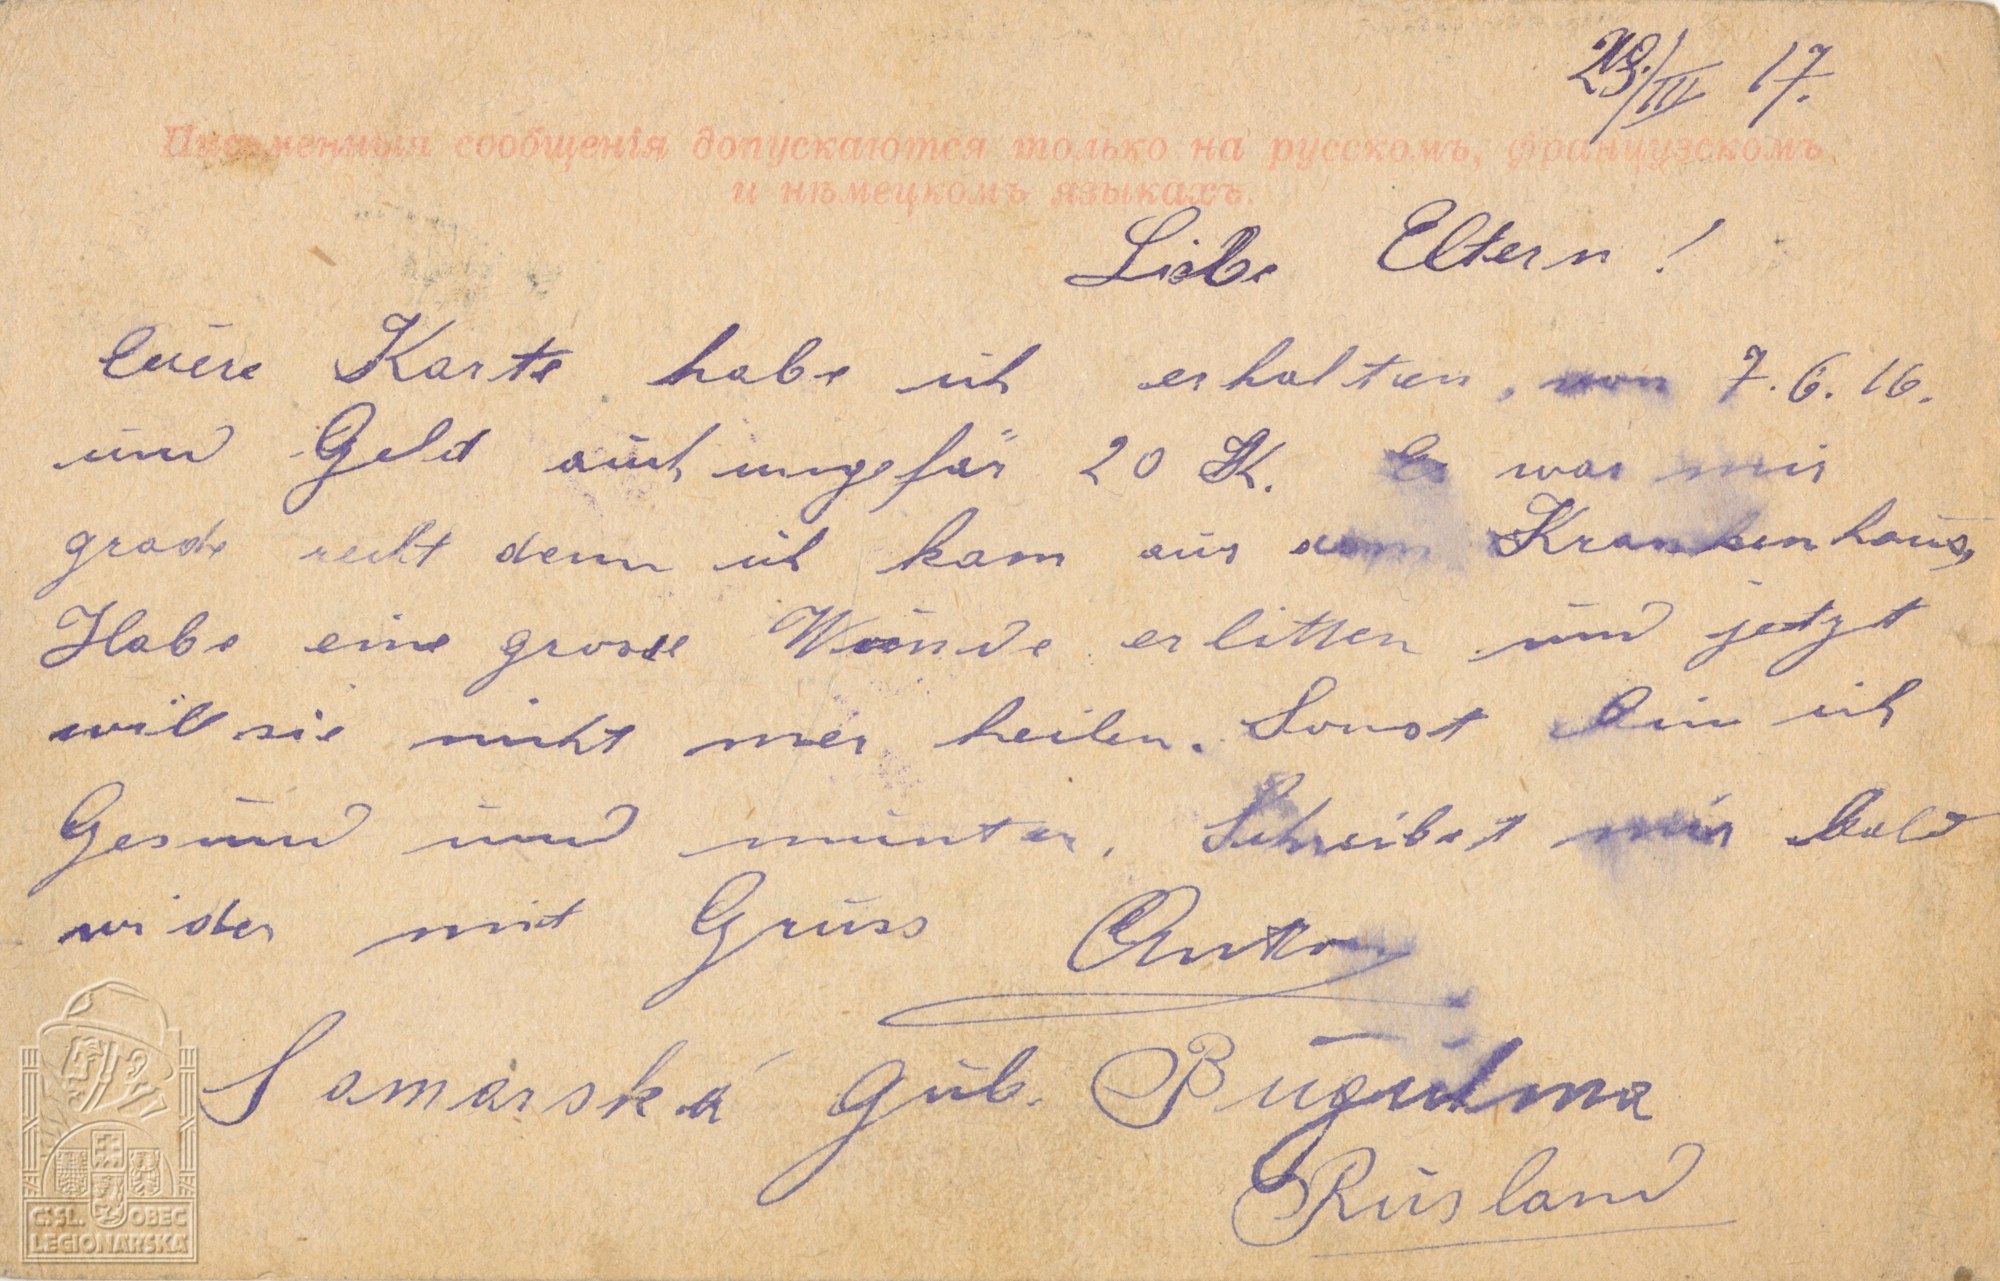 23/III 17.
Письменныя сообщенія допускаются только на русскомъ, французскомъ
и нѣмецкомъ языкахъ.
Liebe Eltern!
Euere Karte habe ich erhalten, von 7.6.16.
und Geld auch ungefär 20 K. Es war mir
grade recht denn ich kam aus dem Krankenhaus,
Habe eine grosse Wunde erlitten und jetzt
will sie nicht mer heilen. Sonst bin ich
Gesund und munter. Schreibet mir bald
wider mit Gruss Anton
Samarská gub. Bugulma
Rusland
ČSL. OBEC
LEGIONÁŘSKÁ